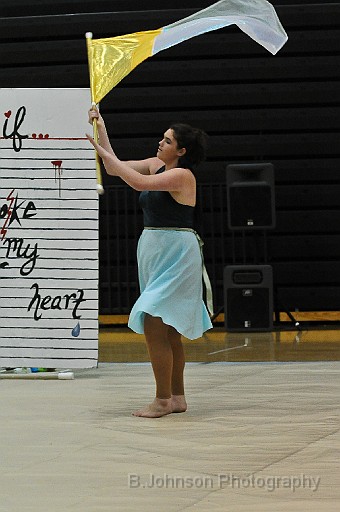 if...
my
heart
B.Johnson Photography